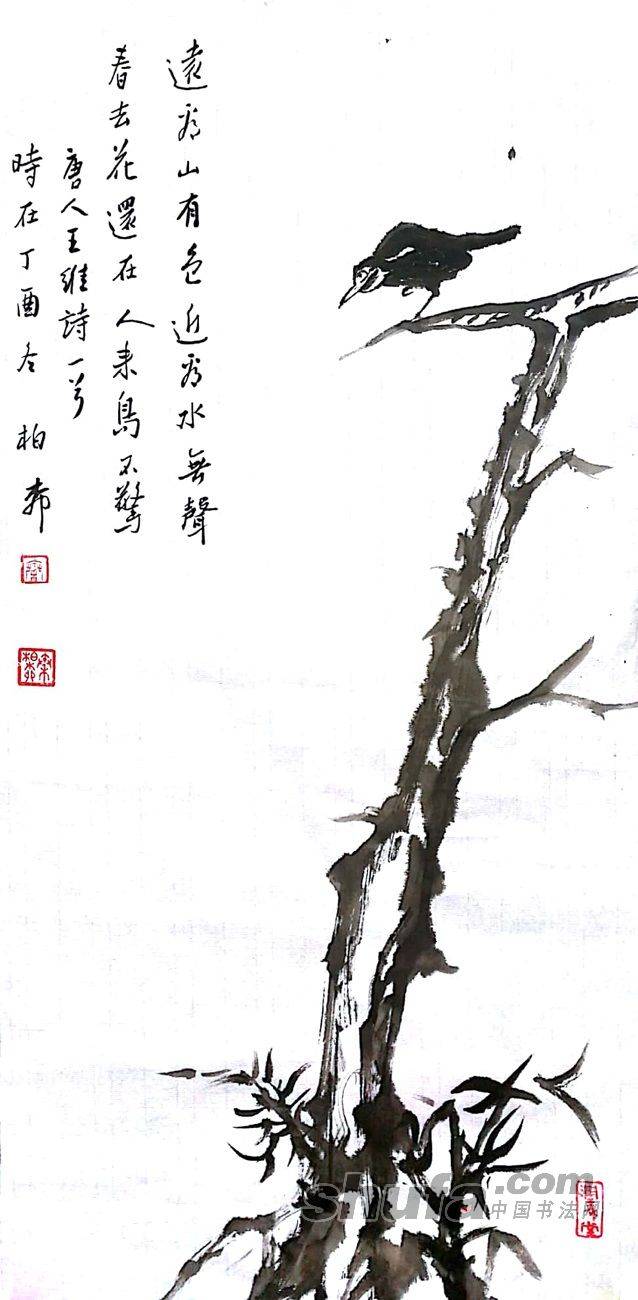 遠看山有色近看水無聲
春去花還在人来鳥不驚
唐人王維詩一首
時在丁酉冬柏
shufa.com
中国书法网